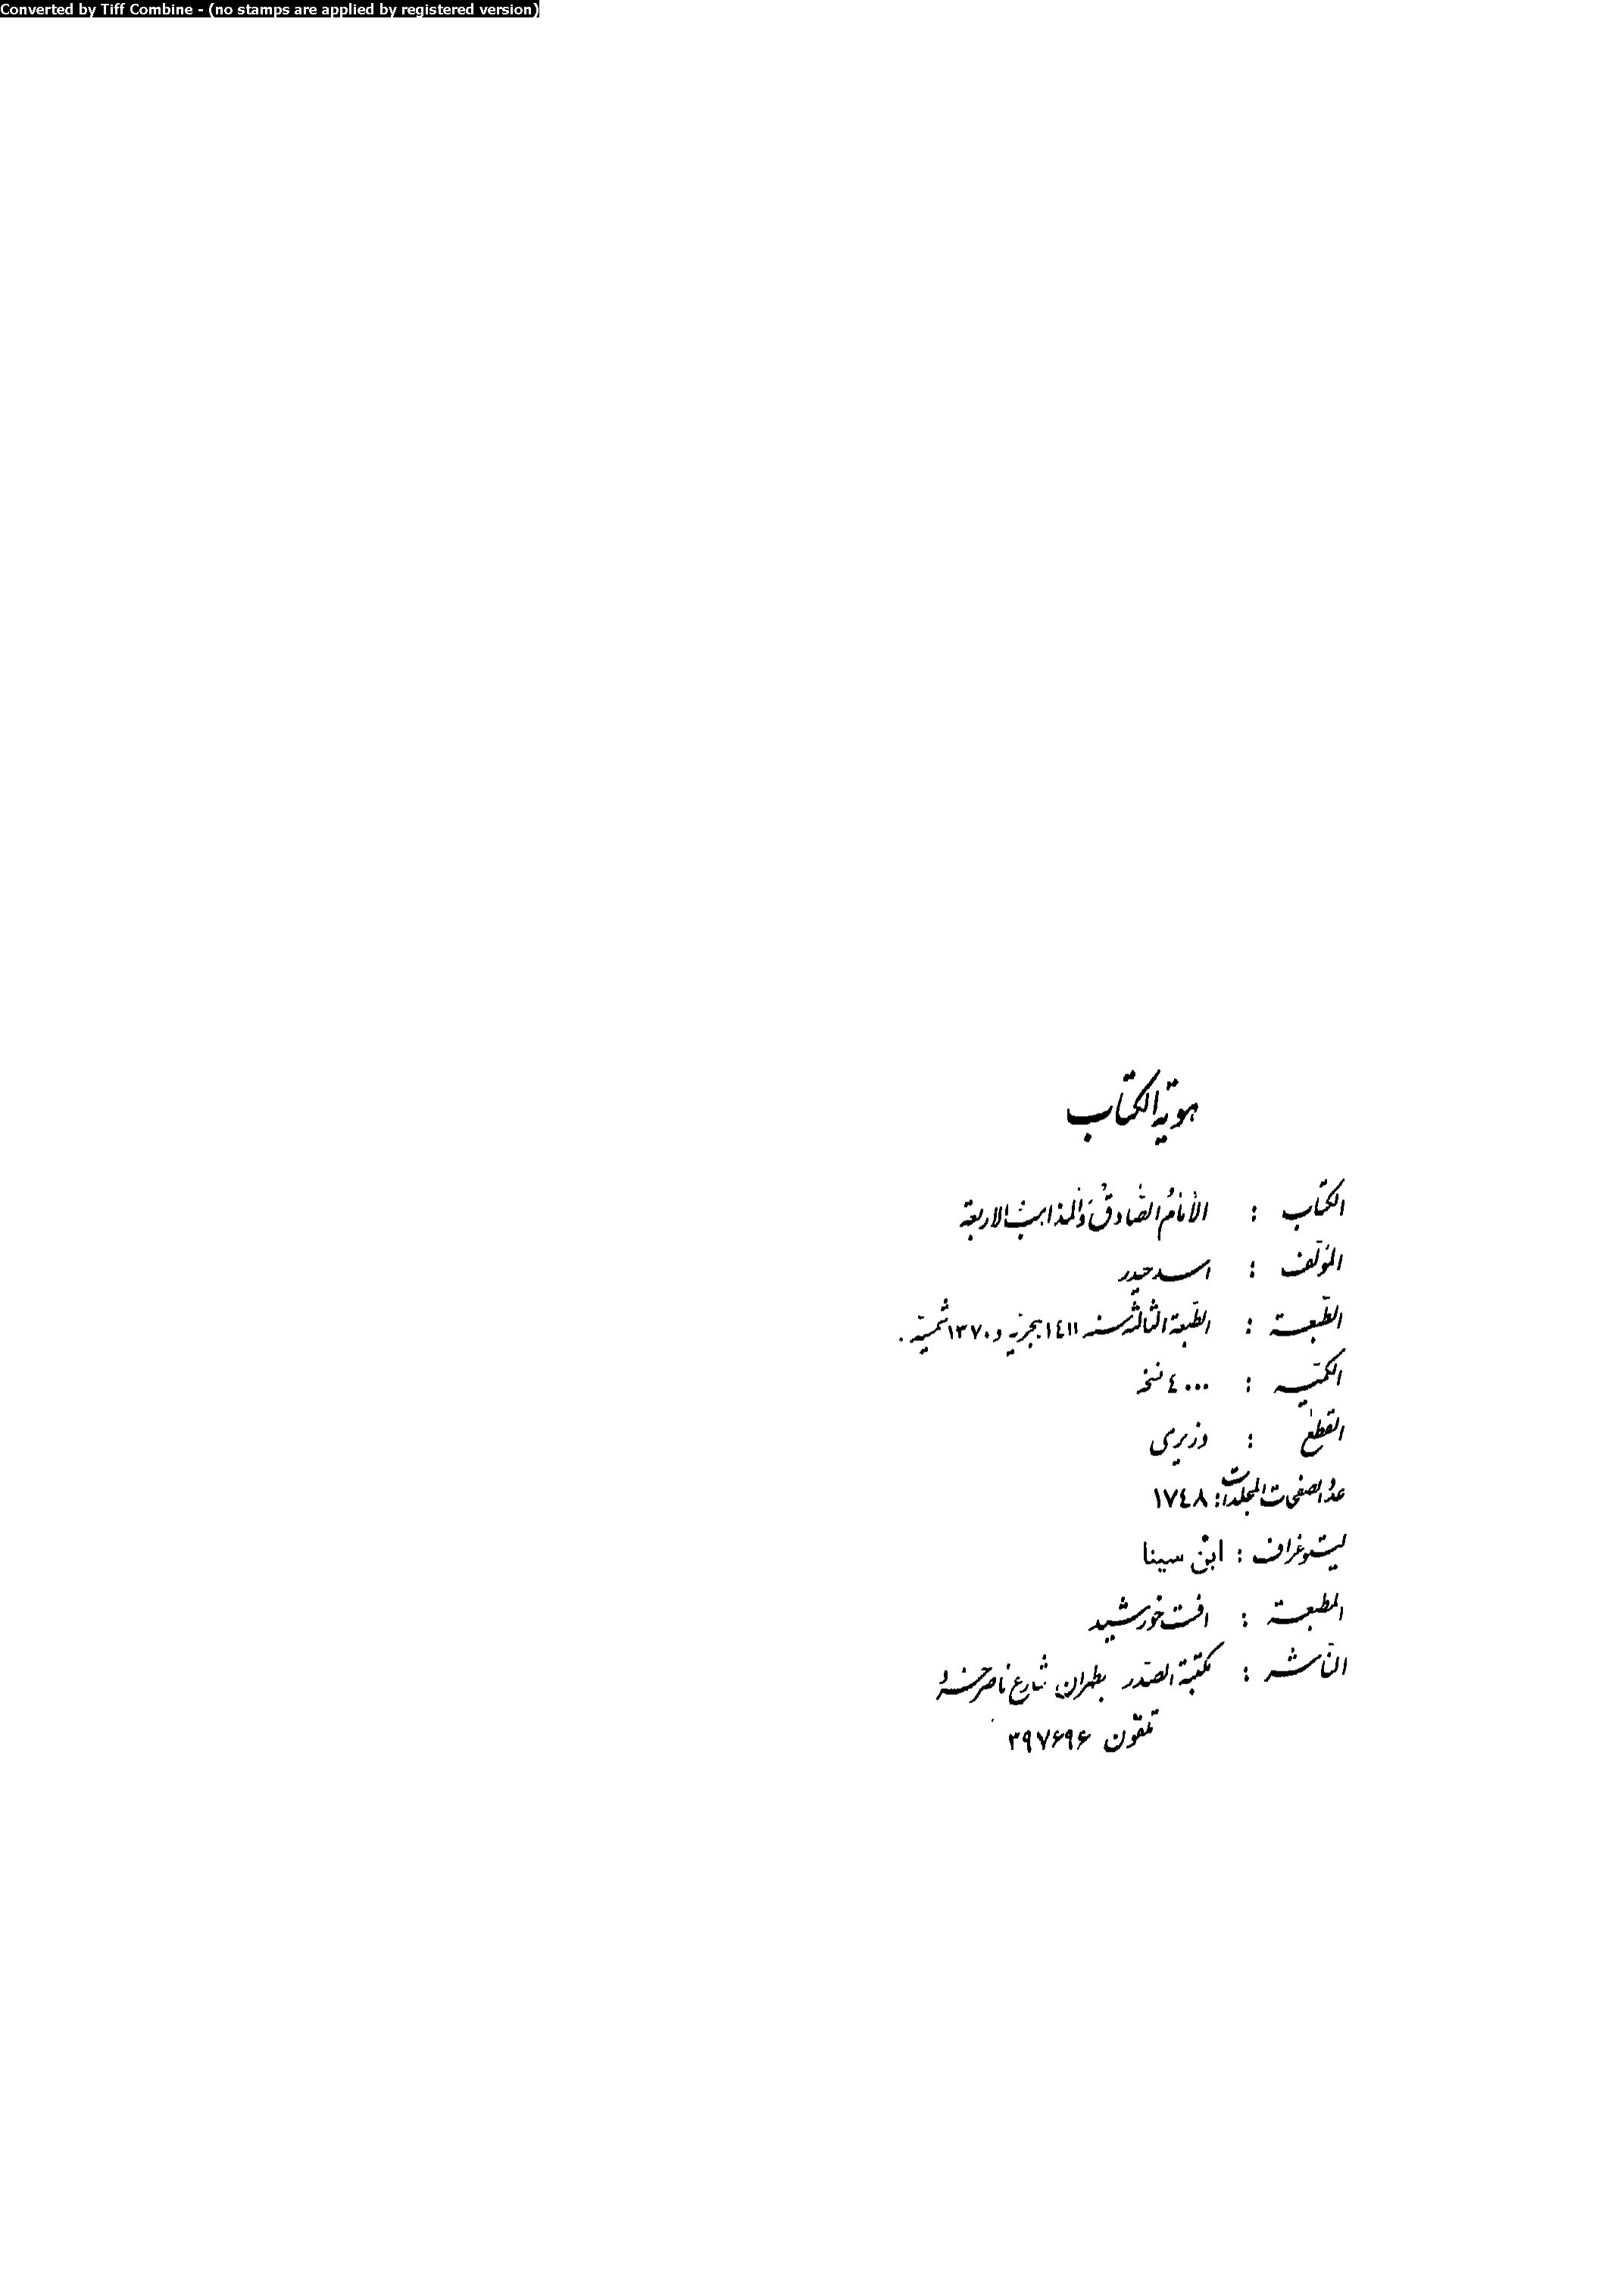 Converted by Tiff Combine - (no stamps are applied by registered version)
هوية الكتاب
الكتاب : الأمام الصادق والمذاهب الاربعة
المؤلف : اسد حيدر
الطبعة : الطبعة الثالثة سنه ١٤١١ هجريّه و ١٣٧٠ شمسيّه .
الكمّيه : ٤٠٠٠ نسخه
القطع : وزيري
عدد صفحات المجلدات : ١٧٤٨
ليتوغراف : ابن سينا
المطبعة : افست خورشيد
النّاشر : مكتبة الصّدر بطهران شارع ناصر خسرو
تلفون ٣٩٧۶٩۶